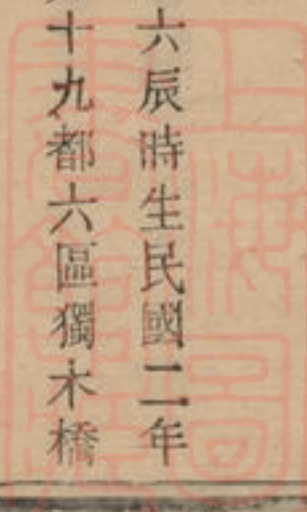 六辰時生民國二年
十九都六區獨木橋